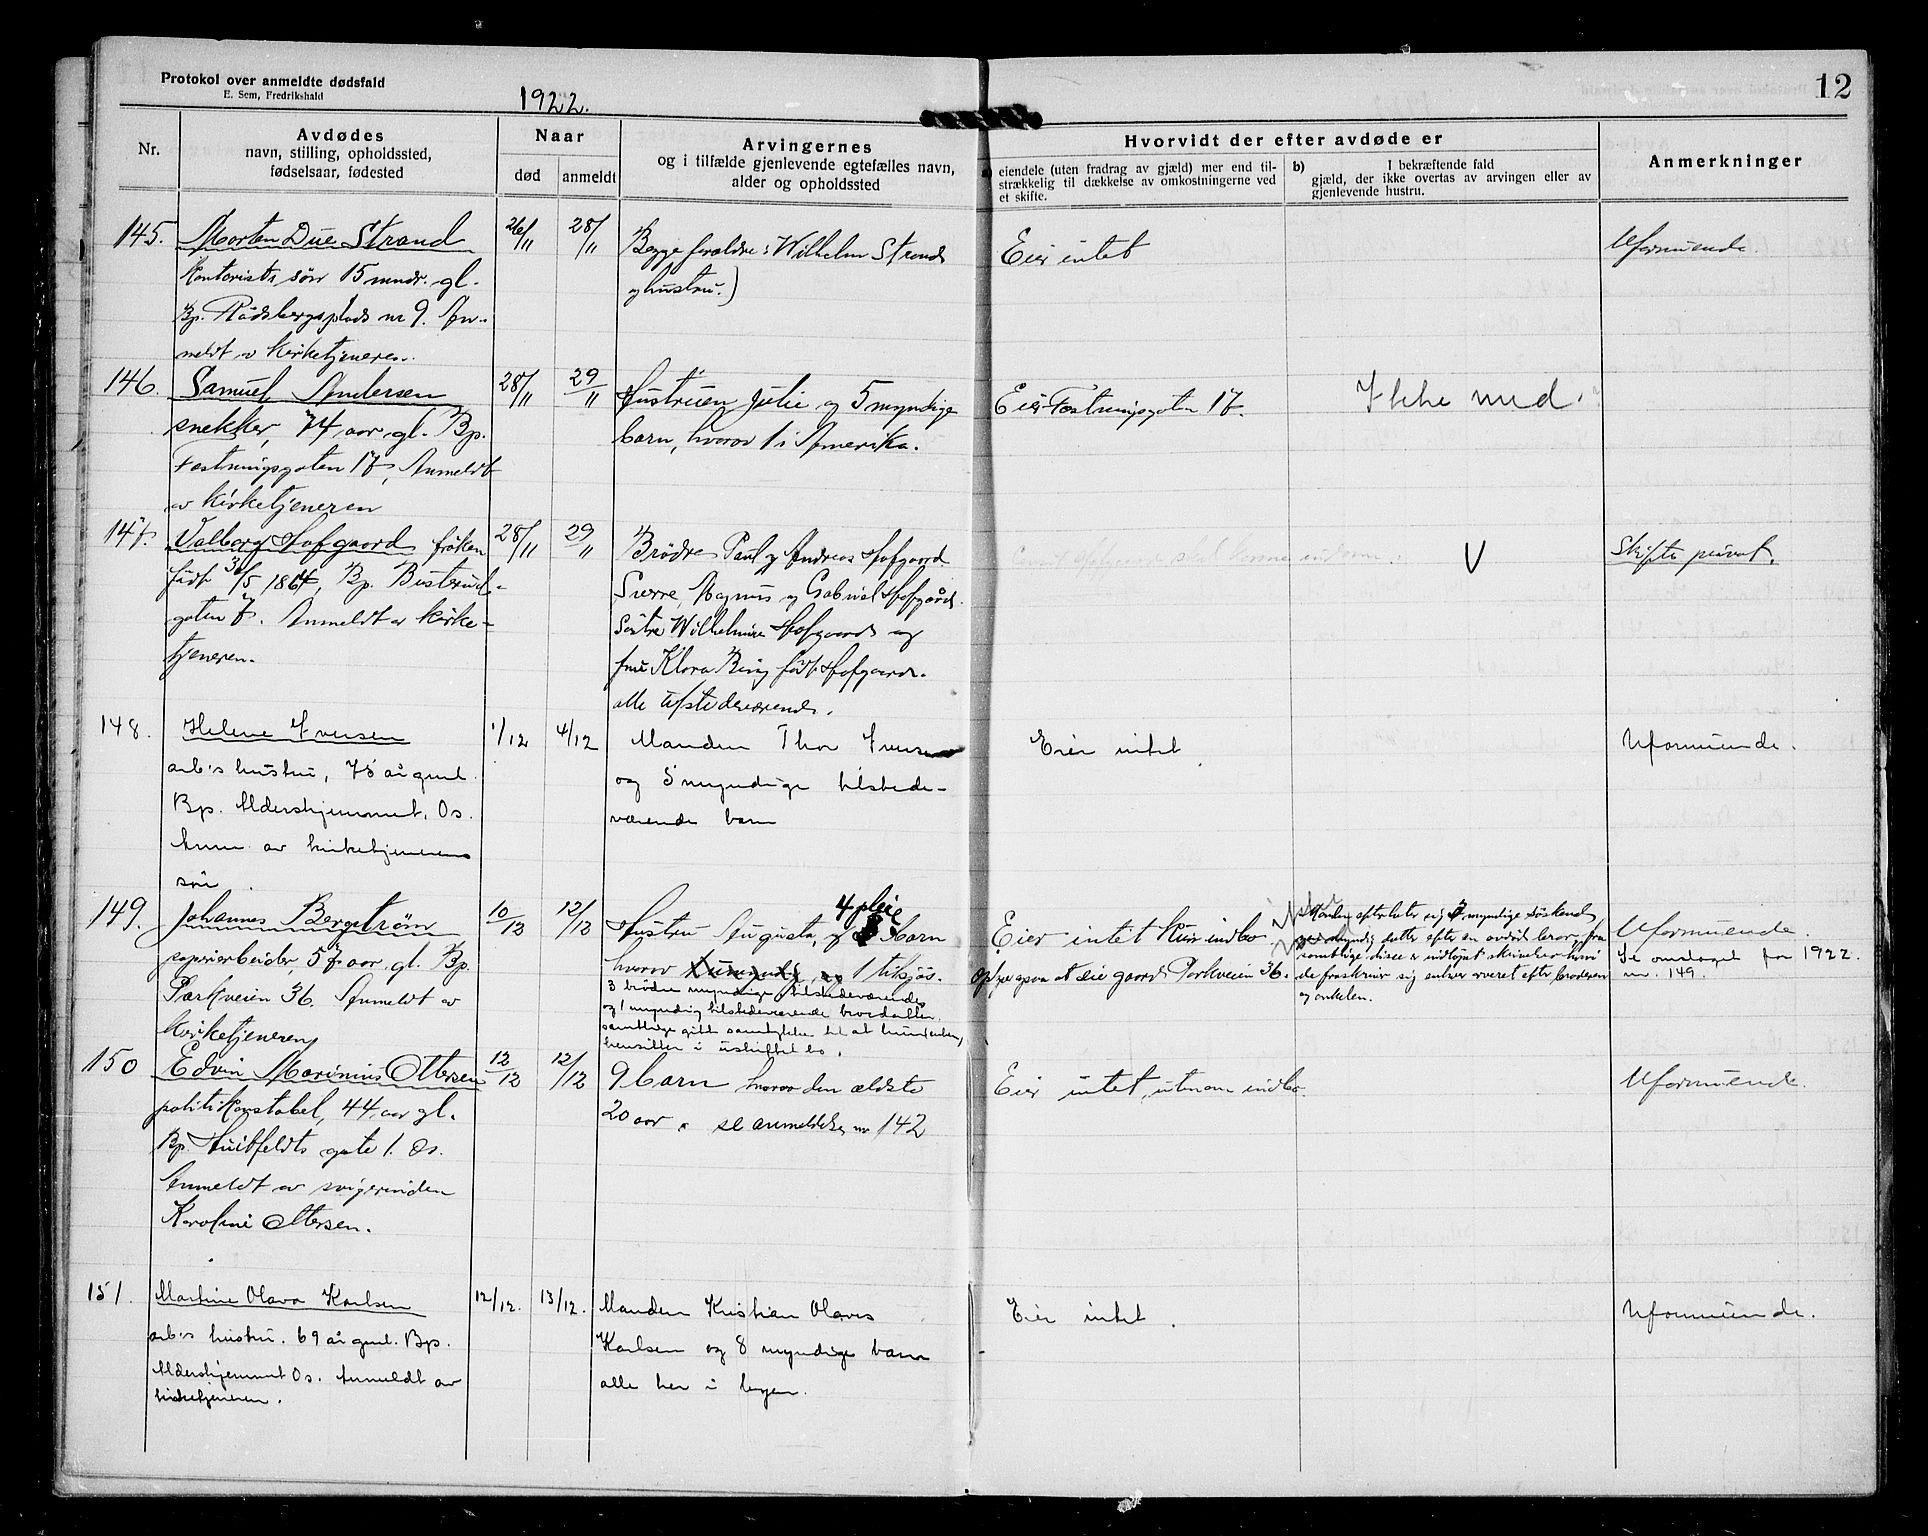 Protokol over anmeldte dødsfald
E. Sem, Fredrikshald
1922.
12
Nr.
Avdødes
navn, stilling, opholdssted,
fødselsaar, fødested
Naar
død
anmeldt
Arvingernes
og i tilfælde gjenlevende egtefælles navn,
alder og opholdssted
Hvorvidt der efter avdøde er
eiendele (uten fradrag av gjæld) mer end til-
strækkelig til dækkelse av omkostningerne ved
et skifte.
b) I bekræftende fald
gjæld, der ikke overtas av arvingen eller av
gjenlevende hustru.
Anmerkninger
145. Morten Due Strand
Kontorists sön 15 mndr. gl.
Bp. Rödsbergsplads nr 9. An-
meldt av Kirketjeneren.
26/11
28/11
Begge forældre: Wilhelm Strand
og hustru.)
Eier intet
Uformuende.
146. Samuel Andersen
snekker, 74 aar gl. Bp.
Festningsgaten 17, Anmeldt
av Kirketjeneren
28/11
29/11
Hustruen Julie og 5 myndige
barn, hvorav 1 i Amerika.
Eier Festningsgaten 17.
Ikke med.
147. Valborg Hofgaard fröken
født 30/5 1864, Bp. Busterud-
gaten 7. Anmeldt av Kirke-
tjeneren.
28/11
29/11
Brödre Paul og Andreas Hofgaard
Sverre, Magnus og Gabriel Hofgård.
Söstre Wilhelmine Hofgaard og
frue Klara Bing født Hofgaard.
alle tilstedeværende.
V
Skifte privat.
148. Helene Iversen
arb's hustru, 75 år gml.
Bp. Aldershjemmet, Os.
Anm. av kirketjenerens
sön.
1/12
4/12
Manden Thor Iversen
og 5 myndige tilstede-
værende barn
Eier intet.
Uformuende.
149. Johannes Bergström
papirarbeider, 57 aar gl. Bp.
Parkveien 36. Anmeldt av
Kirketjeneren
10/12
12/12
4 pleie
Hustru Augusta, og barn
hvorav umyndig og 1 tilsjös.
3 brödre myndige tilstedeværende
og 1 myndig tilstedeværende brordatter.
samtlige gitt samtykke til at hun
hensitter i uskiftet bo.
Eier intet Kun indbo
Oppe ogsaa at eie gaard Parkveien 36.
Manden efterlater sig 3 myndige söskende
myndig datter efter en avdöd bror, fra
samtlige disse er indlöpet skrivelser hvori
de fraskriver sig enhver arveret efter broderen
og onkelen.
Uformuende.
Se omslaget for 1922.
nr. 149.
150 Edvin Marinius Ottersen
politikonstabel, 44 aar gl.
Bp. Huitfeldts gate 1. Os.
Anmeldt av svigerinden
Karoline Ottersen.
12/12
12/12
9 barn hvorav den ældste
20 aar. se anmeldelse nr 142
Eier intet, utenom indbo.
Uformuende.
151. Martine Olava Karlsen
arb's hustru. 69 år gml. Bp.
Aldershjemmet Os. Anmeldt av
kirketjeneren.
12/12.
13/12.
Manden Kristian Olaves
Karlsen og 8 myndige barn
alle her i byen.
Eier intet.
Uformuende.